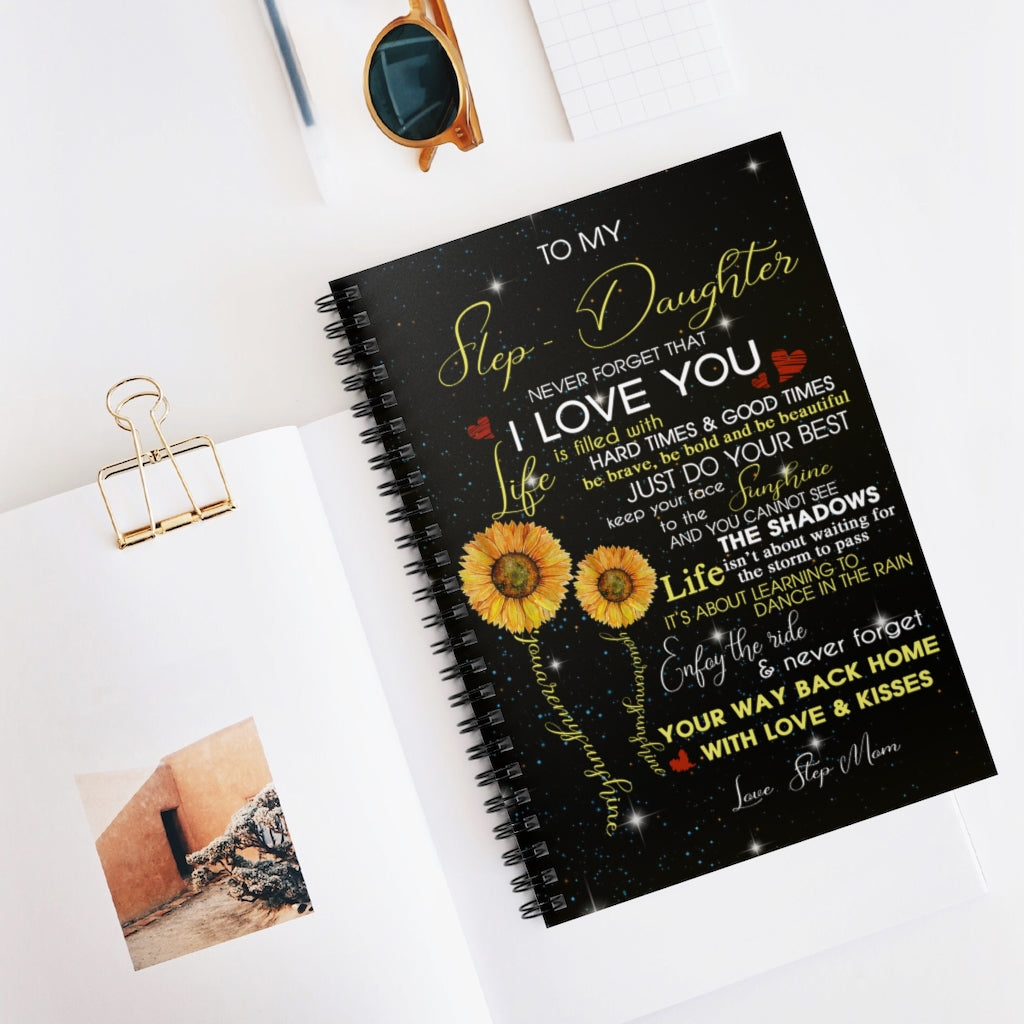 TO MY
Step - Daughter
NEVER FORGET THAT
I LOVE YOU
Life is filled with
HARD TIMES & GOOD TIMES
be brave, be bold and be beautiful
JUST DO YOUR BEST
keep your face
to the Sunshine
AND YOU CANNOT SEE
THE SHADOWS
Life isn't about waiting for
the storm to pass
IT'S ABOUT LEARNING TO
DANCE IN THE RAIN
Enjoy the ride
& never forget
YOUR WAY BACK HOME
WITH LOVE & KISSES
Love Step Mom
youaremysunshine
youaremysunshine